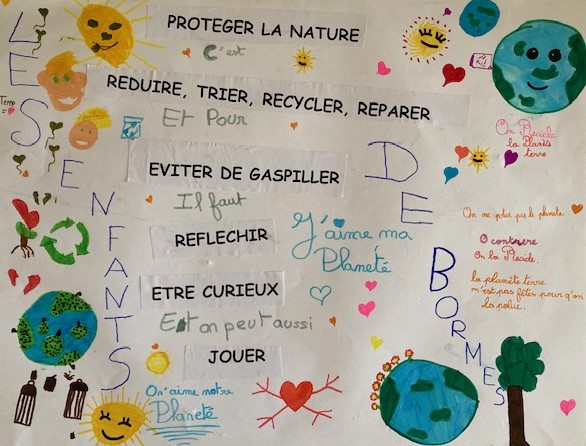 LES ENFANTS DE BORMES
PROTEGER LA NATURE
C'est
REDUIRE, TRIER, RECYCLER, REPARER
Et Pour
EVITER DE GASPILLER
Il faut
REFLECHIR
ETRE CURIEUX
Et on peut aussi
JOUER
J'aime ma
Planeté
On aime notre
Planete
On Recicle
la Planète
terre
On ne polue pas la planete
O contraire
On la Recicle.
la planète terre
n'est pas fêter pour q'on
la polue.